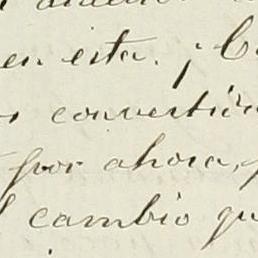 en esta. ¡C
convertir
por ahora,
cambio qu